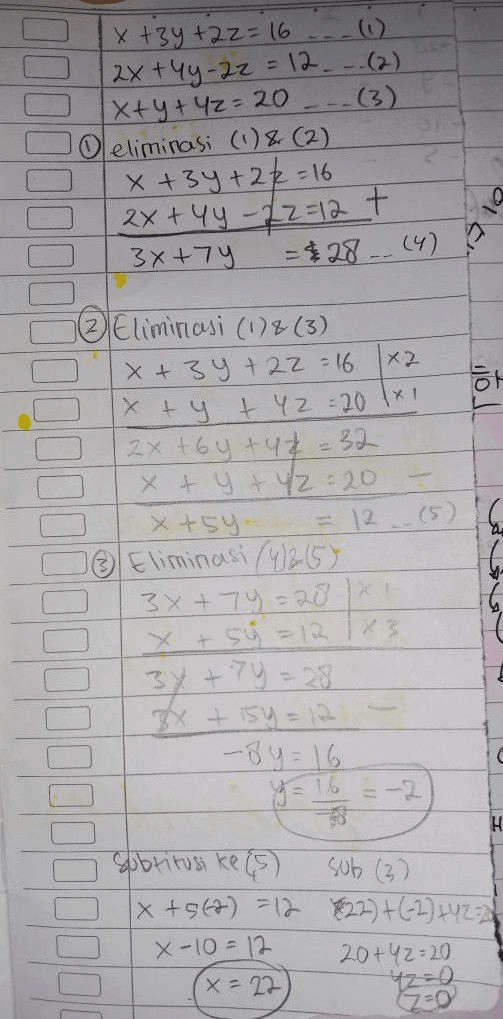 x + 3y + 2z = 16 ---- (1)
2x + 4y - 2z = 12 - -- (2)
x + y + 4z = 20 ---- (3)
① eliminasi (1) & (2)
x + 3y + 2z = 16
2x + 4y - 2z = 12 +
3x + 7y = 28 -- (4)
② Eliminasi (1) & (3)
x + 3y + 2z = 16 | x 2
x + y + 4z = 20 | x 1
2x + 6y + 4z = 32
x + y + 4z = 20 -
x + 5y = 12 -- (5)
③ Eliminasi (4) & (5)
3x + 7y = 28 | x 1
x + 5y = 12 | x 3
3x + 7y = 28
3x + 15y = 12 -
-8y = 16
y = 16/-8 = -2
Subtitusi ke (5) Sub (3)
x + 5(-2) = 12 (22) + (-2) + 4z = 2
x - 10 = 12 20 + 4z = 20
x = 22 4z = 0
z = 0